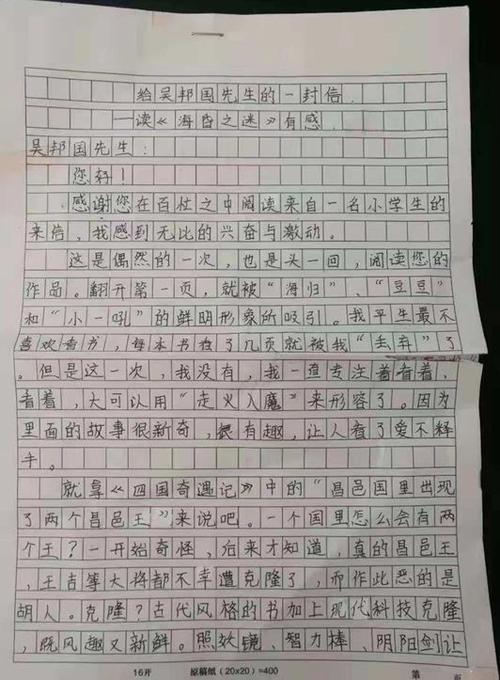 给吴邦国先生的一封信
——读《海昏之迷》有感
吴邦国先生：
您好！
感谢您在百忙之中阅读来自一名小学生的
来信，我感到无比的兴奋与激动。
这是偶然的一次，也是头一回，阅读您的
作品。翻开第一页，就被“海归”、“豆豆”
和“小一吼”的鲜明形象所吸引。我平生最不
喜欢看书，每本书看了几页就被我“丢弃”了
。但是这一次，我没有，我一直专注着看着、
看着，大可以用“走火入魔”来形容了。因为
里面的故事很新奇，很有趣，让人看了爱不释
手。
就拿《四国奇遇记》中的“昌邑国里出现
了两个昌邑王”来说吧。一个国里怎么会有两
个王？一开始奇怪，后来才知道，真的昌邑王
，王吉等大将都不幸遭克隆了，而作此恶的是
胡人。克隆？古代风格的书加上现代科技克隆
，既风趣又新鲜。照妖镜、智力棒、阴阳剑让
16开 原稿纸（20x20）=400 第 页